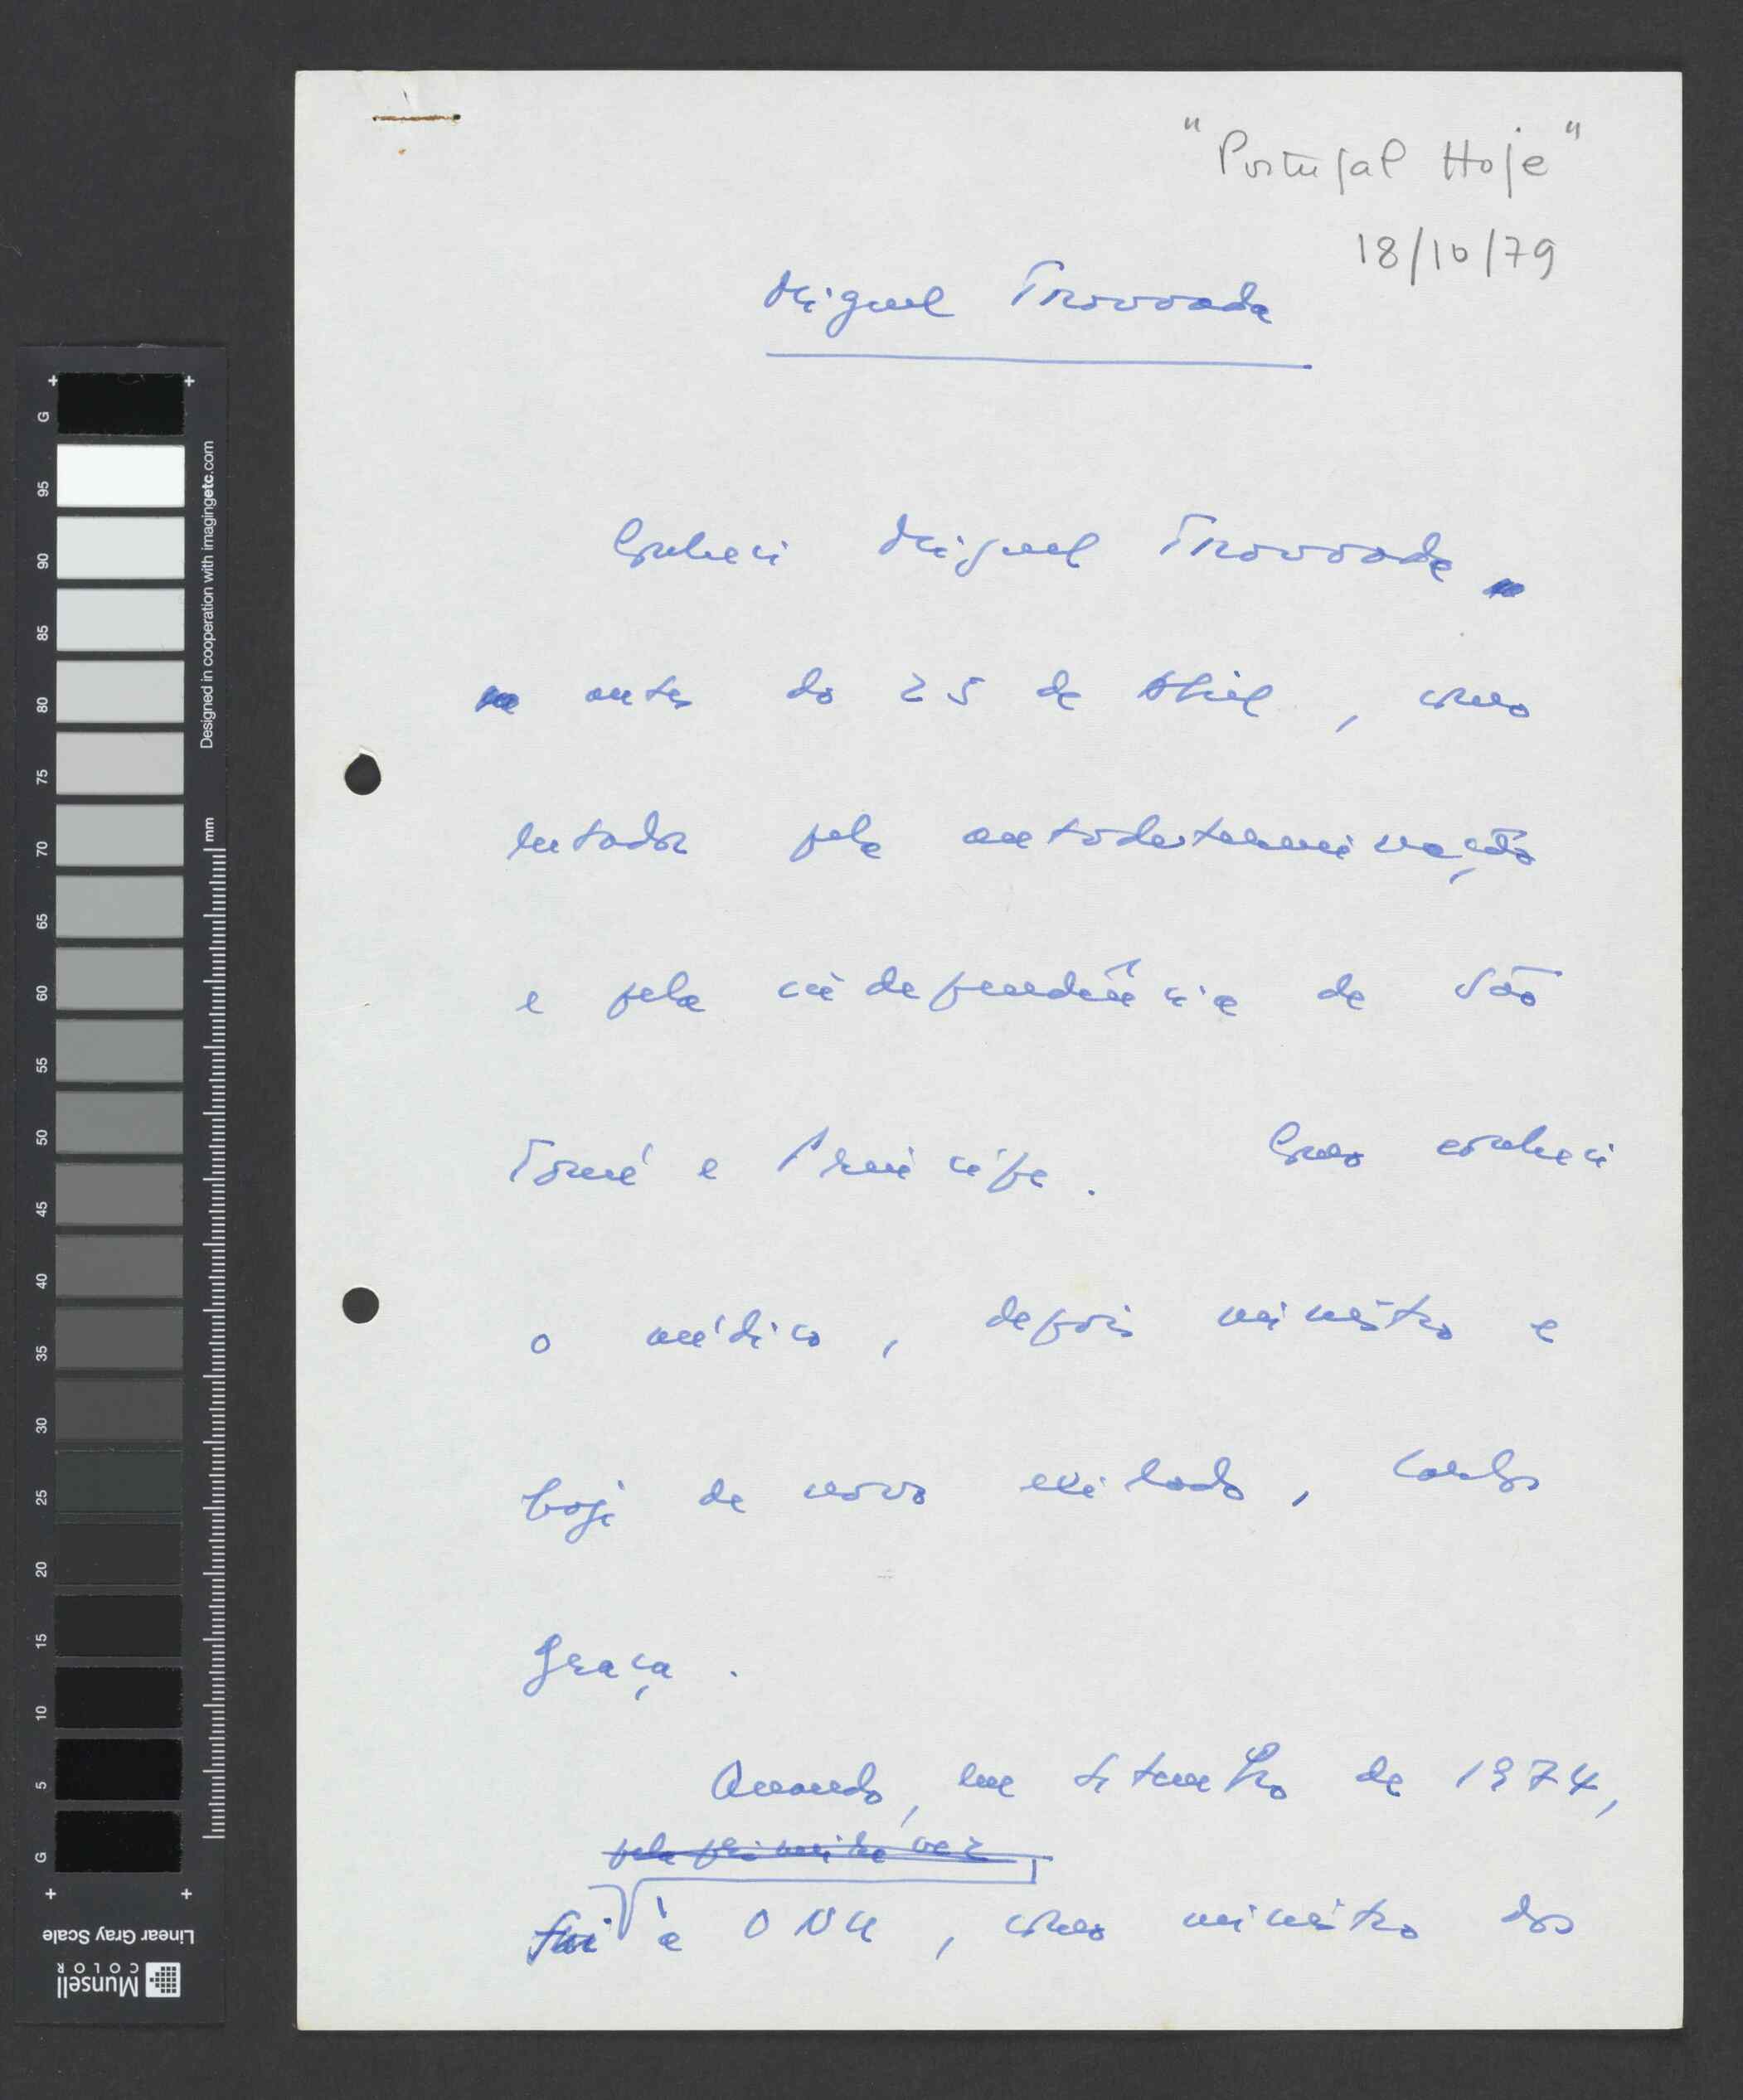 "Portugal Hoje"
18/10/79
Miguel Trovoada
Conheci Miguel Trovoada
antes do 25 de Abril, como
lutador pela autodeterminação
e pela independência de São
Tomé e Príncipe. Como conheci
o médico, depois ministro e
hoje de novo exilado, Carlos
Graça.
Quando, em Setembro de 1974,
pela primeira vez
fui à ONU, como ministro dos
Designed in cooperation with imagingetc.com
mm
G
95
90
85
80
75
70
65
60
55
50
45
40
35
30
25
20
15
10
5
G
Linear Gray Scale
Munsell
COLOR